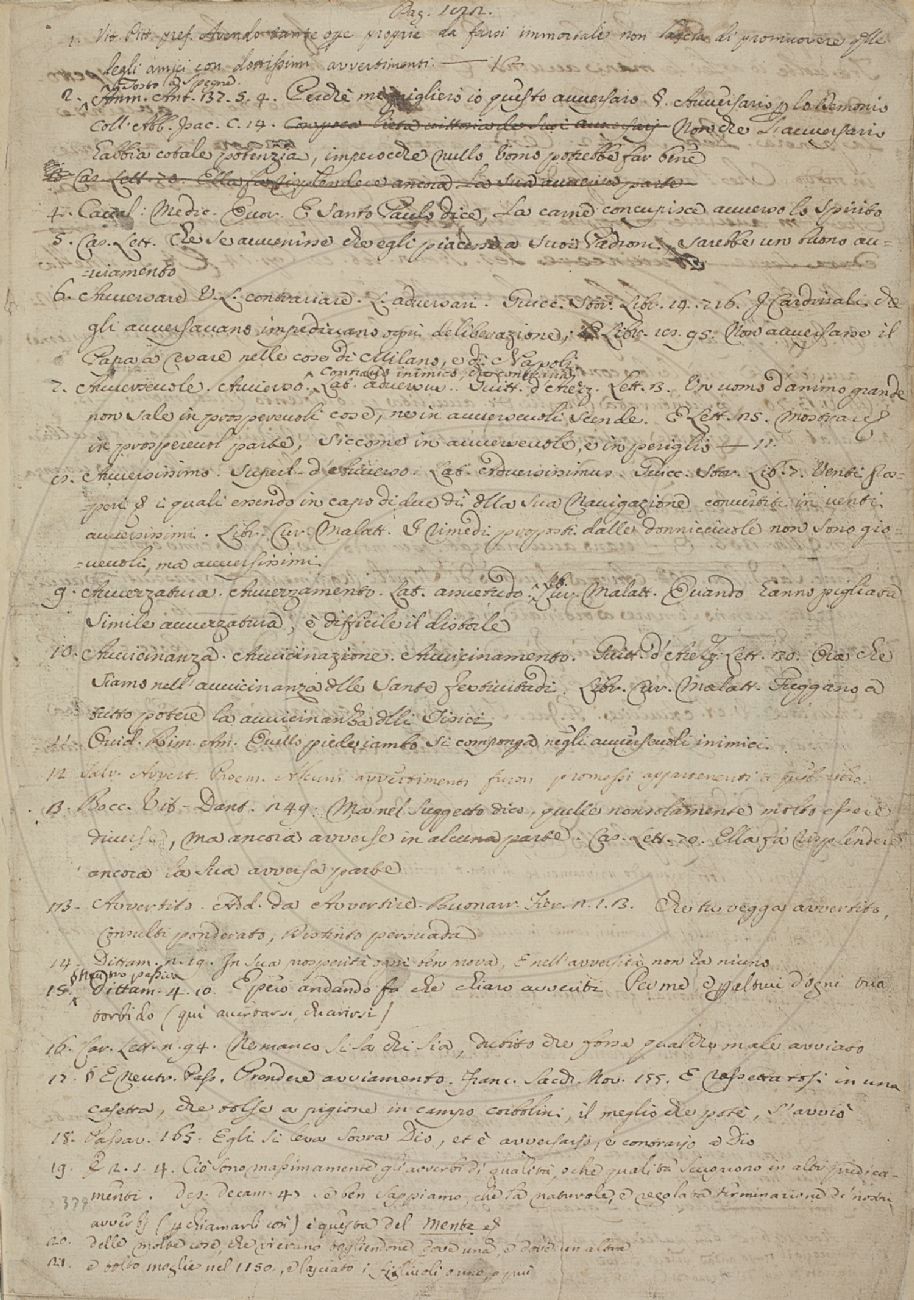 Pag.
1. Vit. Pitt. pref. Avendo tante ope proprie da farsi immortale non lascia di promuovere
degli amici con dottissimi avvertimenti
2. Amm. Ant. 137. 5. 4. Perchè mi pigliero io questo avversaro § Avversario p lo Demonio
Coll. Abb. Isac. C. 14. Non che l'avversario
habbia cotale potenzia, imperocchè nullo homo potrebbe far bene
Car. Lett. 70. Ella fa risplendere ancora la sua avversa parte
4. Caval. Medic. Cuor. E Santo Paulo dice, La carne concupisce avverso lo Spirito
5. Car. Lett. Che se avvenisse che egli piacesse a Suoi Padroni, sarebbe un buono av-
-viamento
6. Avversare V. L. contrariare. L. adversari. Guicc. Stor. Libr. 14. 716. I Cardinali che
gli avversavano impedivano ogni deliberazione, Libr. 95. Non avversasse il
Papa à Cesare nelle cose di Milano, e di Napoli
contrario inimico
7. Avversevole. Avverso. Lat. adversus. Guitt. d'Arez. Lett. 13. Un uomo d'animo grande
non sale in prosperevoli cose, ne in avversevoli scende. E Lett. 25. mostrare
in prosperevol parte, siccome in avversevole, e in periglio
Avversissimo. Superl. d'Avverso. Lat. adversissimus. Guicc. Stor. Lib. 7. Venti pros-
-peri § i quali essendo in capo di due dì della sua Navigazione convertiti in venti
avversissimi. Libr. Cur. Malatt. I rimedi proposti dalle donnicciuole non sono gio-
-vevoli, ma avversissimi.
9. Avvezzatura. Avvezzamento. Lat. assuetudo. Lib. Cur. Malatt. Quando hanno pigliata
simile avvezzatura, è difficile il distorle
10. Avvicinanza. Avvicinazione. Avvicinamento. Guitt. d'Arez. Lett. 130. Ora che
siamo nell'avvicinanza delle Sante festivitudi. Libr. Cur. Malatt. Fuggano a
tutto potere la avvicinanza delli Tisici
11. Ovid. Rim. Am. Quello piede iambo si componga negli avversevoli inimici.
12. Salv. Avvert. Proem. Alcuni avvertimenti furon promossi appartenenti a
13. Bocc. Vit. Dant. 249. Ma nel suggetto dico, quelle non solamente molto essere
diverse, ma ancora avverse in alcuna parte. Car. Lett. 70. Ella fa risplendere
ancora la sua avversa parte
113. Avvertito. Add. da Avvertire. Buonarr. Fier. 2. 1. 13. Che tu vegga avvertito,
Consulti ponderato, ristinto persuada
14. Dittam. 2. 19. In sua prosperità ogni ben nova, E nell'avversità non ha niuno
15. Dittam. 4. 10. E però andando fa che chiaro avverti Per me e p altrui d'ogni
torbido (qui avertarsi, chiarirsi)
16. Car. Lett. 2. 94. Nemanco si sa chi sia, dubito che fosse qualche male avviato
17. § E Neutr. Pass. Prendere avviamento. Franc. Sacch. Nov. 155. E rassettatosi in una
casetta, che tolse a pigione in campo corbolini, il meglio che potè, s'avviò
18. Passav. 165. Egli si leva sovra Dio, et è avversario, e contrario a Dio
19. E 2. 1. 4. Ciò sono massimamente gli avverbi di qualità, o che qualità seguono in altri predica-
-menti. Dep. Decam. 43 e ben sappiamo, che la naturale, e regolata terminazione de' nostri
avverbj (p chiamarli così) è questa del Mente, e
20. delle molte cose, che vi erano togliendone dove una, e dove un altra
21. e tolto moglie nel 1150, e lasciato i figliuoli o uno, o più